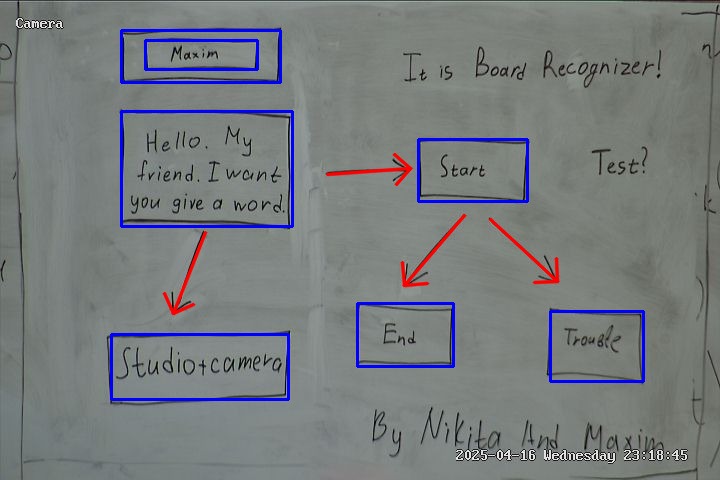 Camera
Maxim
It is Board Recognizer!
Hello. My
friend. I want
you give a word.
Start
Test?
End
Trouble
Studio+camera
By Nikita And Maxim
2025-04-16 Wednesday 23:18:45